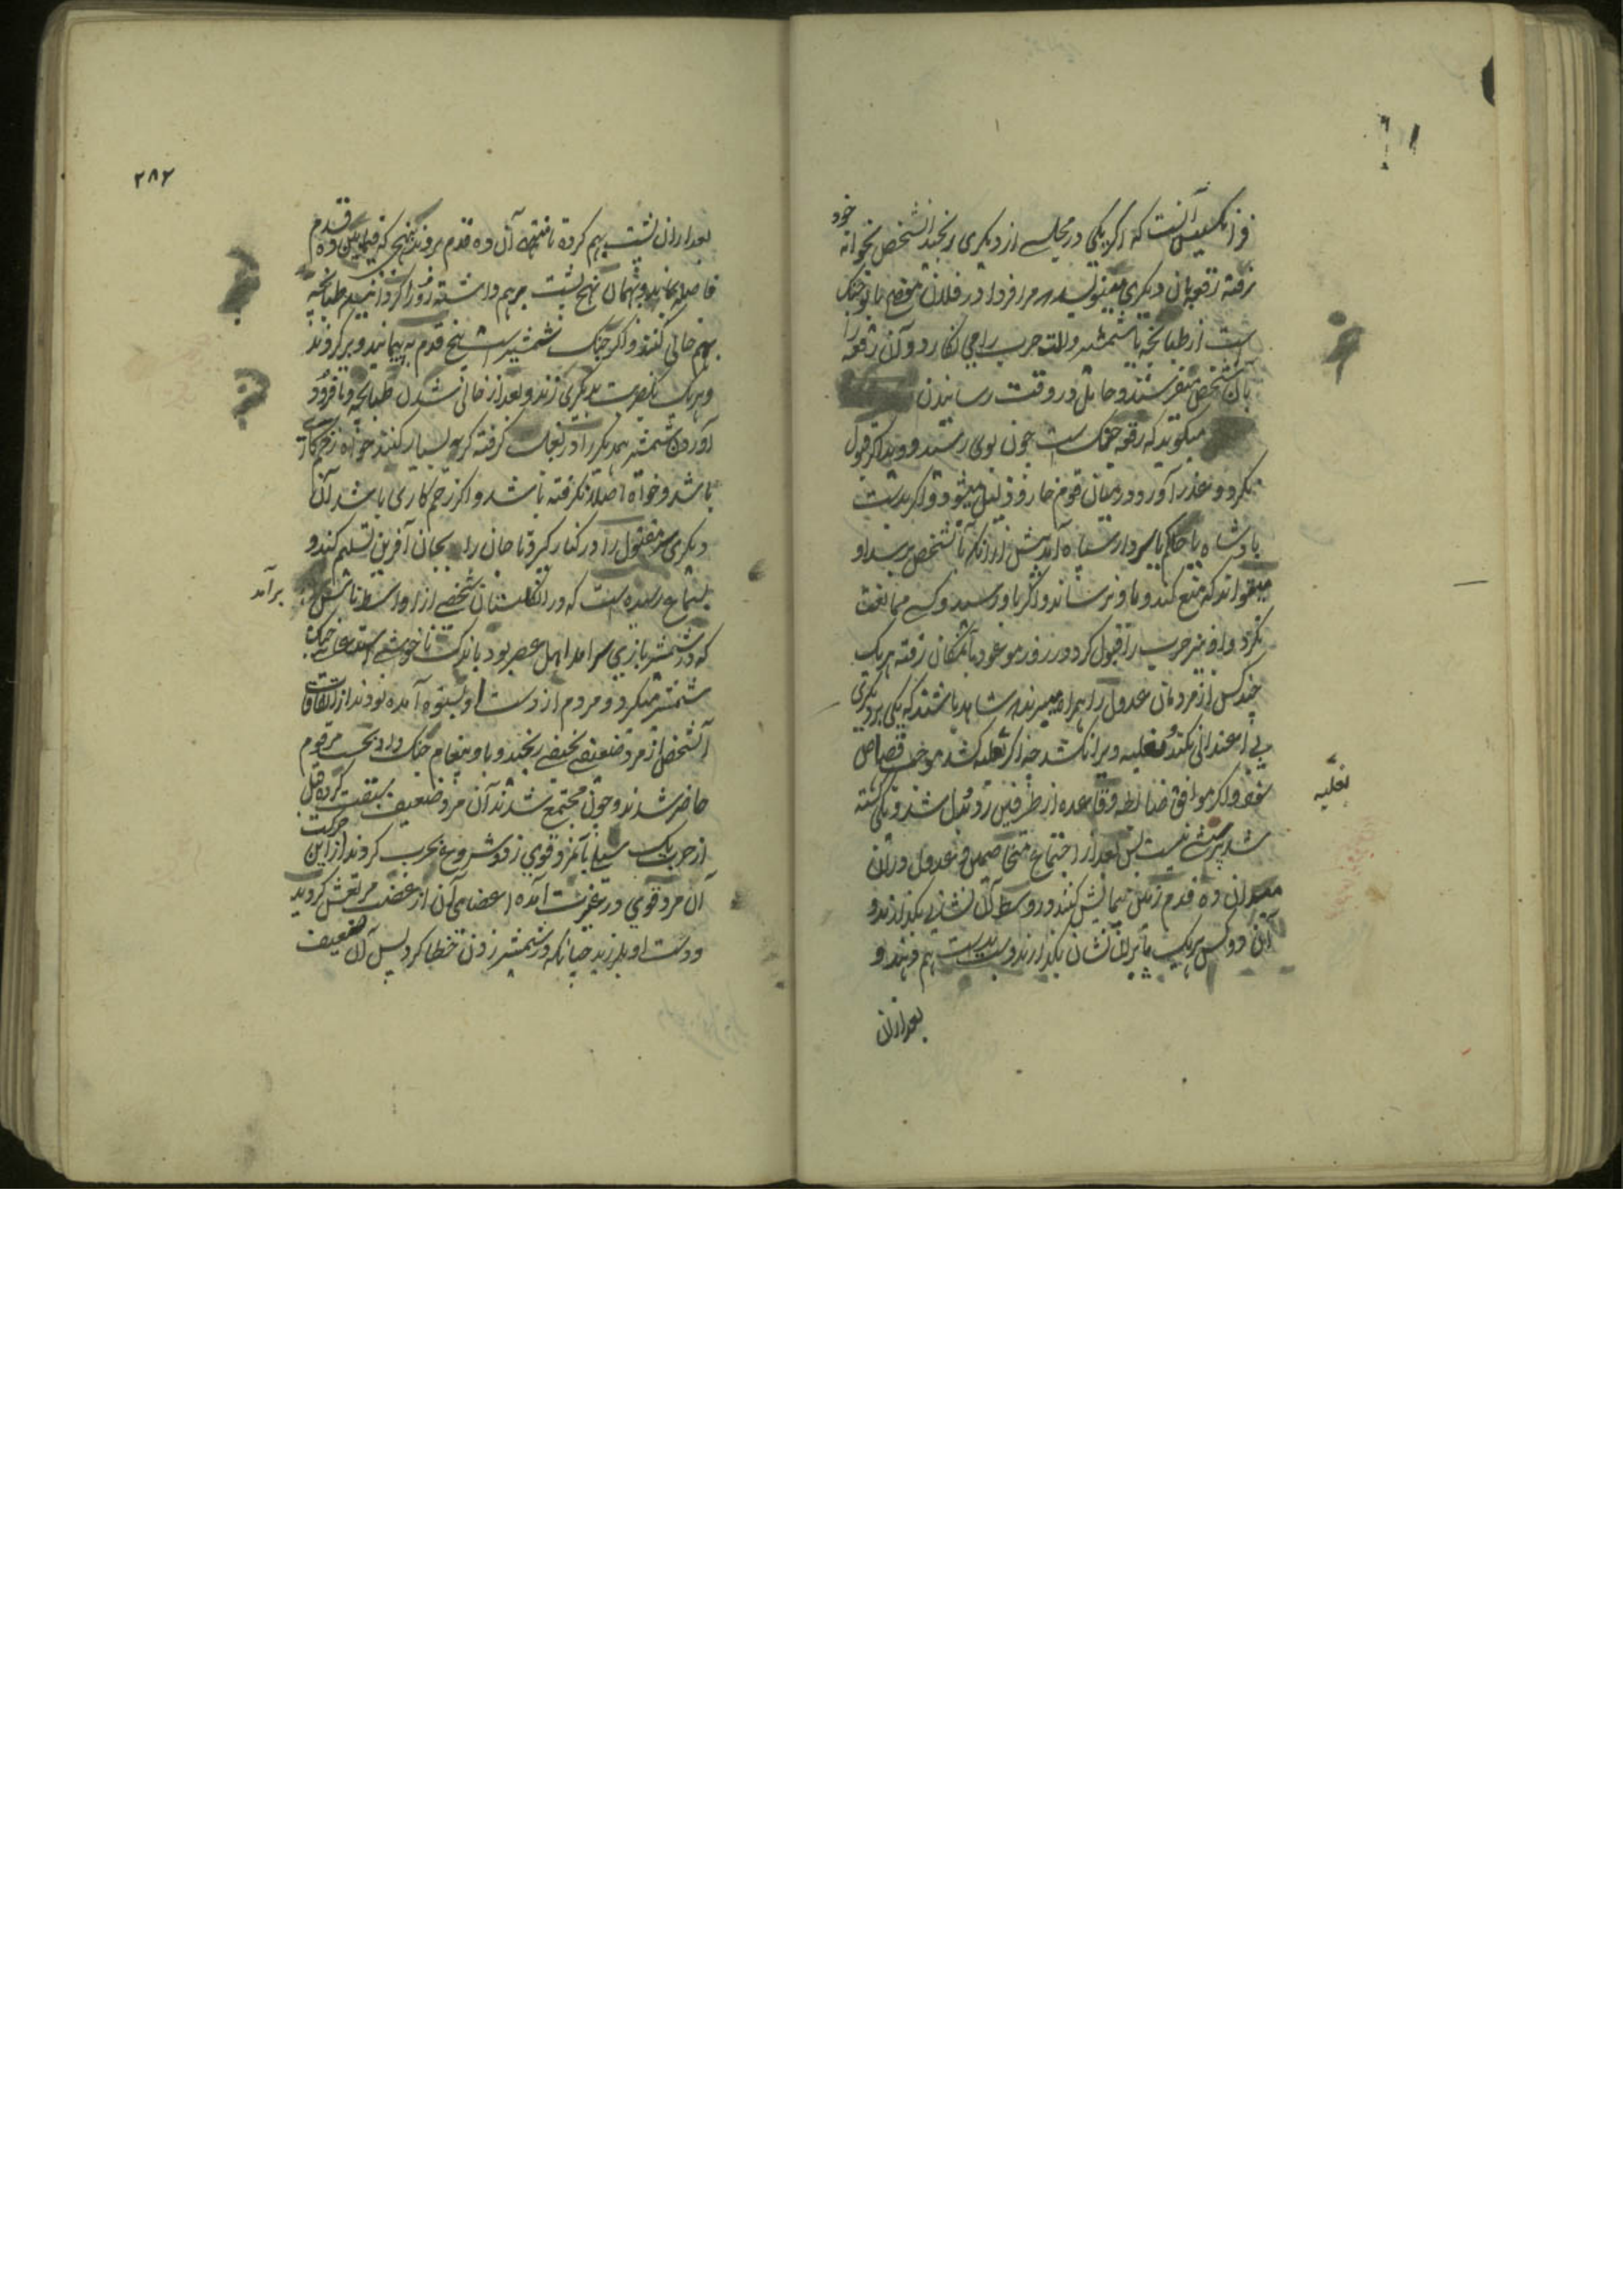 فرانسیس آنست که اگر یکی در مجلسی از دیگری رنجید آنشخص بخوانه خود
رفته رقعه بآن دیگری مینویسد مر فردا در فلان موضع با تو جنک
است از طپانچه یا شمشیر والت حرب را می نکارد و آن رقعه را
بآن شخص میفرستد و حامل در وقت رسانیدن
میکوید که رقعه جنک است چون بوی رسید و دید اگر قبول
نکرد و عذر آورد در میان قوم خار و ذلیل میشود و اگر بدست
پادشاه یا حاکم یا سردار سپاه آمد پیش از آنکه بآنشخص برسد او
میتواند که منع کند و باو نرساند و اگر باو رسید و کسی ممانعت
نکرد و او نیز حرب را قبول کرد در روز موعود بآنمکان رفته هر یک
چند کس از مردمان عدول را همراه میبرند شاهد باشند که یکی بر دیگری
بی اعتدالی نکند و بغلبه ویرا نکشد چه اگر بغلبه کشد موجب قصاص
شود و اگر موافق ضابطه و قاعده از طرفین رد و بدل شد و یکی کشته
شد پرسشی نیست پس بعد از اجتماع متخاصمین و عدول در آن
میدان ده قدم زمین پیمایش کنند و در وسط آن نشانی بگذارند و
این دو کس هر یک پا بر آن نشان بگذارند و دست بدست هم دهند و
بعد ازان
بغلبه
۲۸۲
بعد ازان پشت بهم کرده تا منتهای آن ده قدم بروند بنهجی که فیمابین ده قدم
فاصله بماند و بهمان نهج پشت بر هم داشته رو را کردانیده طپانچه
بهم خالی کنند و اگر جنک شمشیر است پنج قدم به پیمایند و بر کردند
و هر یک یک ضربت بدیگری زند و بعد از خالی شدن طپانچه و یا فرود
آوردن شمشیر همدیگر را در بغل گرفته گریه بسیار کنند خواه زخم کاری
باشد و خواه اصلا نگرفته باشد و اگر زخم کاری باشد آن
دیگری سر مقتول را در کنار گیرد تا جان را بجان آفرین تسلیم کند و
بسماع رسیده است که در انگلستان شخصی از اواسط ناس
برآمد
که در شمشیر بازی سرامد اهل عصر بود باندک ناخوشی استدعای جنک
شمشیر میکرد و مردم از دست او بستوه آمده بودند از اتفاقات
آنشخص از مرد ضعیف نحیفی رنجید و باو پیغام جنک داد بحسب مرقوم
حاضر شدند و چون مجتمع شدند آن مرد ضعیف سبقت کرده قبل
از حرب یک سیلی بآنمرد قوی زد و شروع بحرب کردند از این حرکت
آن مرد قوی در غیرت آمده اعضای آن از غضب مرتعش کردید
و دست او بلرزید چنانکه در شمشیر زدن خطا کرد پس آن ضعیف